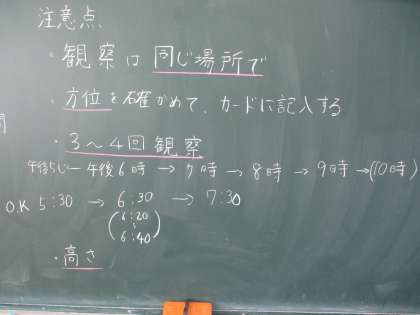 注意点
・観察は同じ場所で
・方位を確かめて、カードに記入する
・3〜4回観察
午後5じー午後6時 → 7時 → 8時 → 9時 → (10時)
O.K 5:30 → 6:30 → 7:30
(6:20
〜
6:40)
・高さ